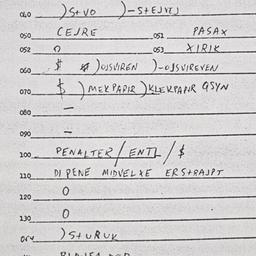 060 )S+VO )-S+EJVEJ
050 CEJRE 051 PASAX
052 0 053 XIRIK
060 $ )OJSVIREN )-OJSVIREVEN
070 $ ) MEKPAPIR ) KLEKPAPIR QSYN
080 —
090 —
100 PENALTER/ENTL/$
110 DIPENE MIDVELXE ERS+RAJPT
120 0
130 0
)S+URUK